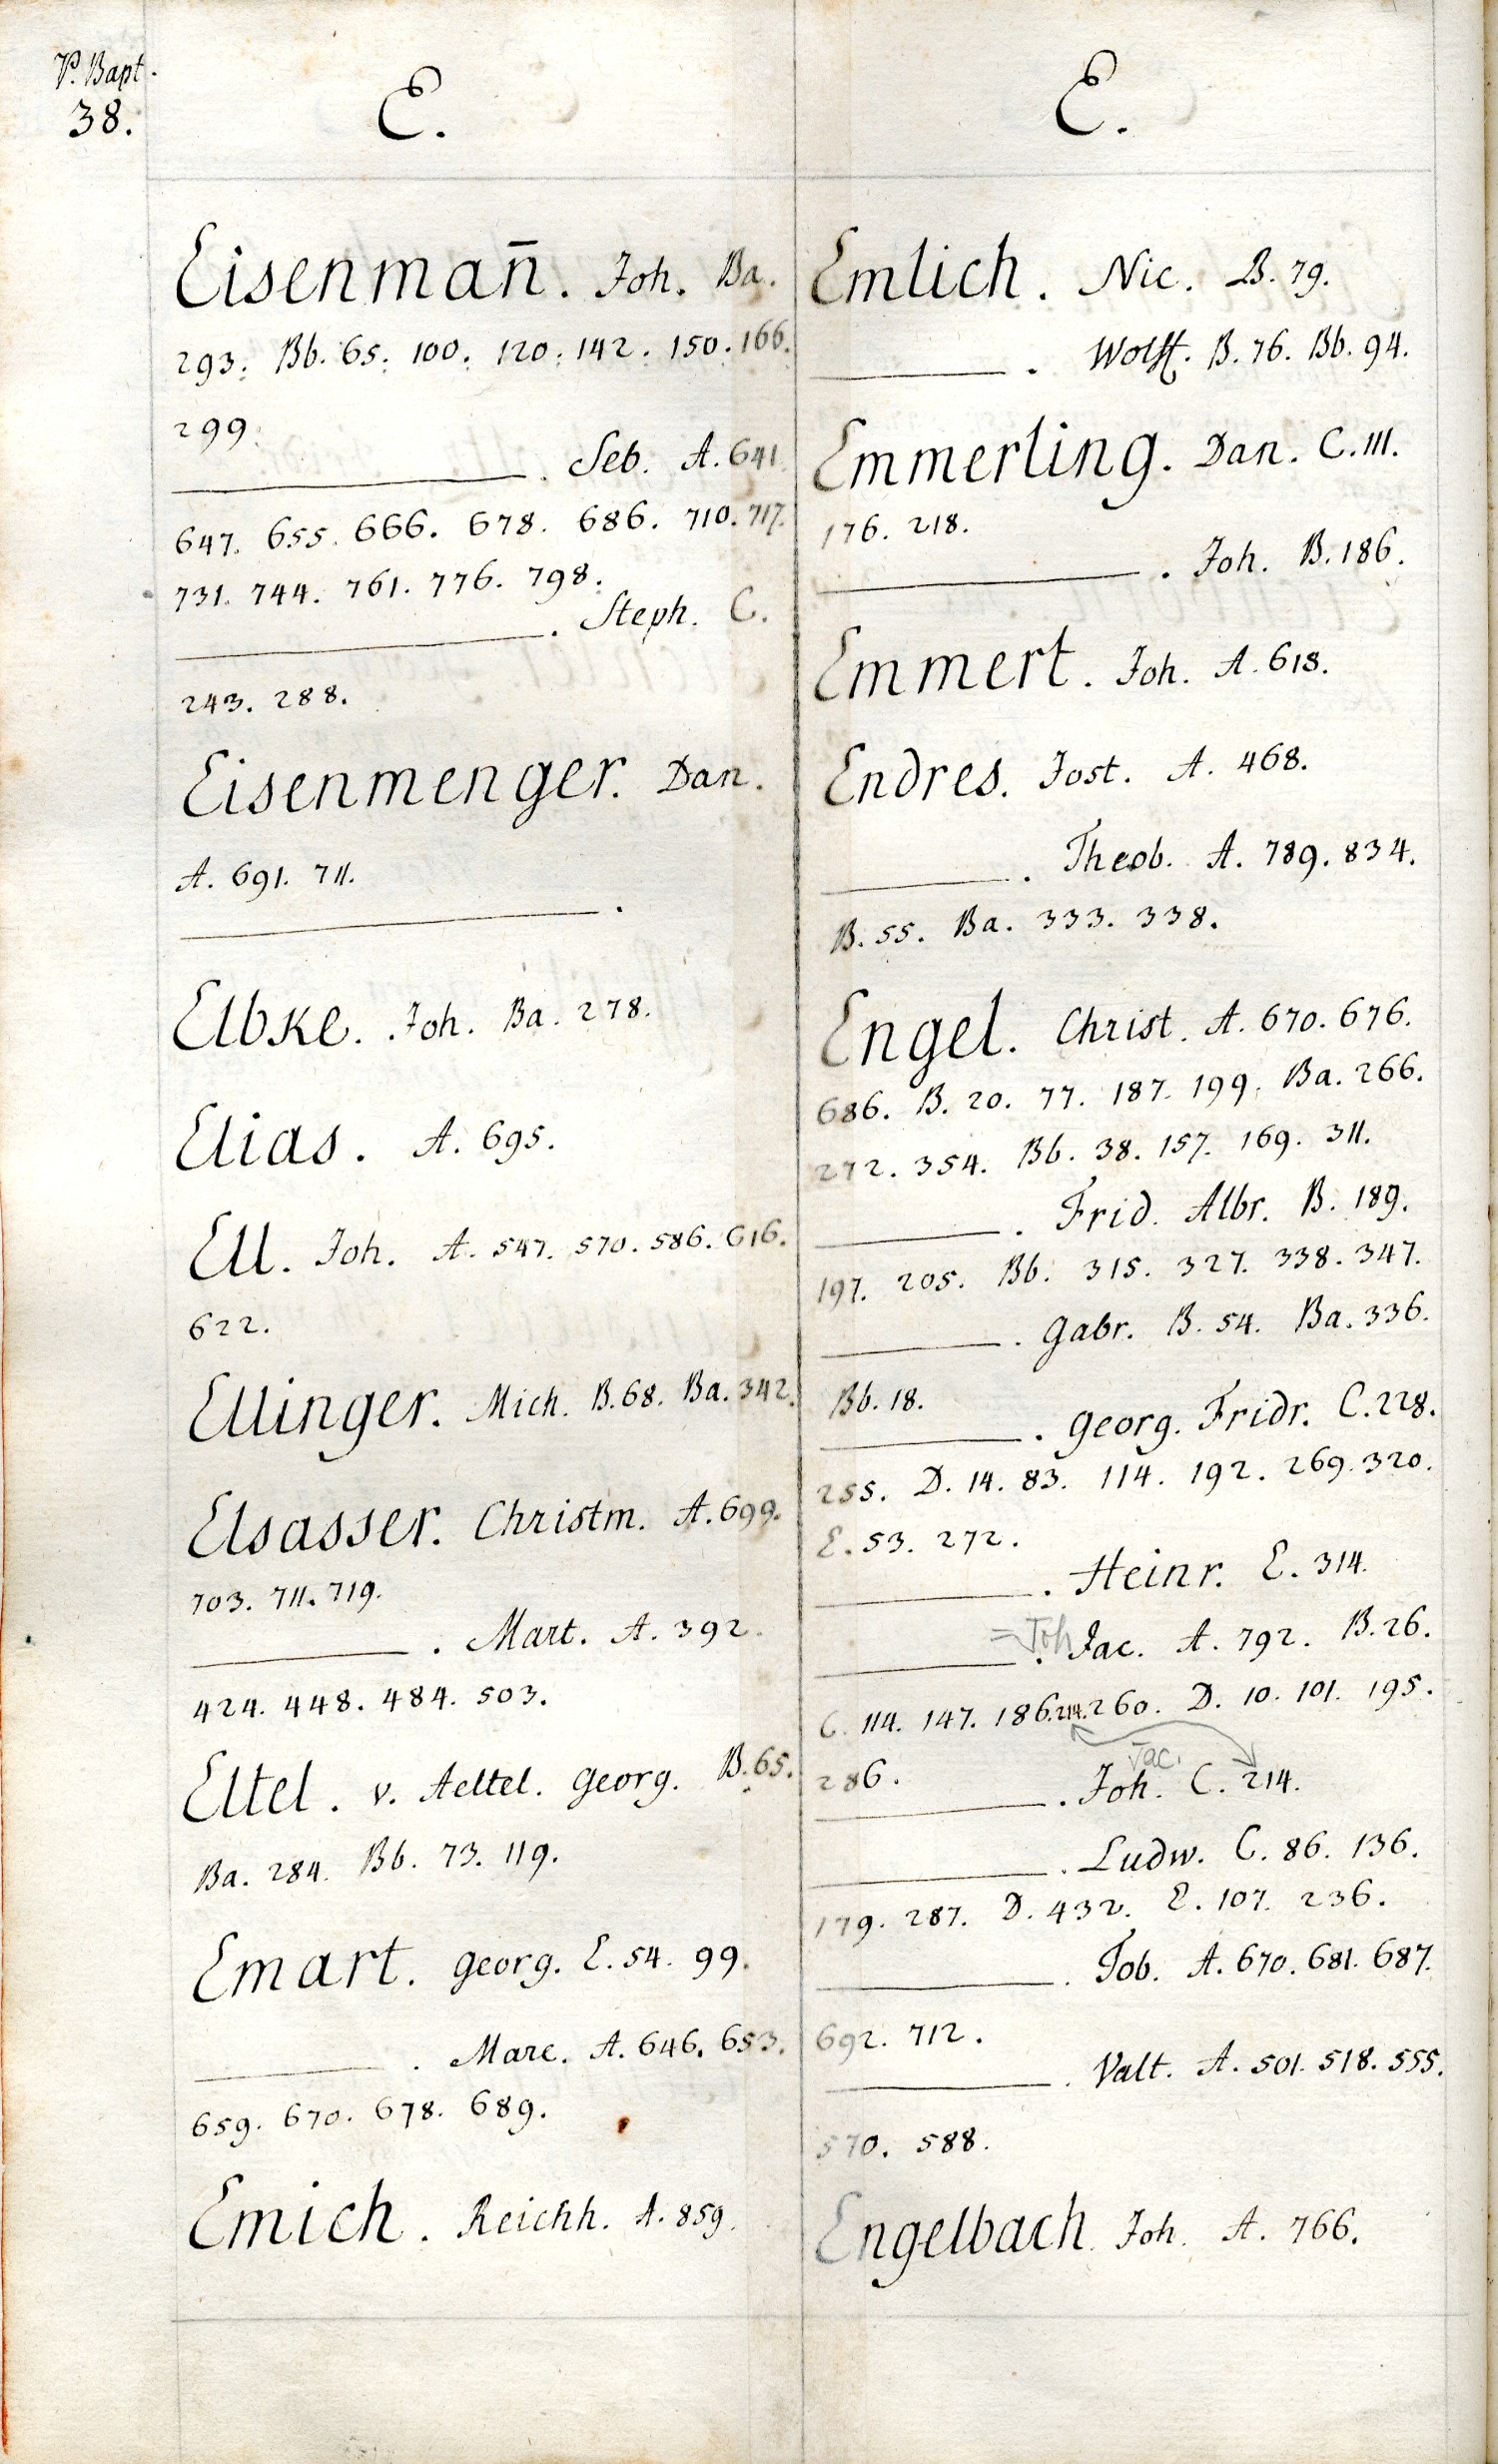 P. Bapt.
38.
E.
Eisenman̄. Joh. Ba.
293. Bb. 65. 100. 120. 142. 150. 166.
299.
———. Seb. A. 641
647. 655. 666. 678. 686. 710. 717.
731. 744. 761. 776. 798.
———. Steph. C.
243. 288.
Eisenmenger. Dan.
A. 691. 711.
———.
Elbke. Joh. Ba. 278.
Elias. A. 695.
Ell. Joh. A. 547. 570. 586. 616.
622.
Ellinger. Mich. B. 68. Ba. 342.
Elsasser. Christm. A. 699.
703. 711. 719.
———. Mart. A. 392.
424. 448. 484. 503.
Eltel. v. Aeltel. Georg. B. 65.
Ba. 284. Bb. 73. 119.
Emart. Georg. E. 54. 99.
———. Marc. A. 646. 653.
659. 670. 678. 689.
Emich. Reichh. A. 859.
E.
Emlich. Nic. B. 79.
———. Wolff. B. 76. Bb. 94.
Emmerling. Dan. C. 111.
176. 218.
———. Joh. B. 186.
Emmert. Joh. A. 618.
Endres. Jost. A. 468.
———. Theob. A. 789. 834.
B. 55. Ba. 333. 338.
Engel. Christ. A. 670. 676.
686. B. 20. 77. 187. 199. Ba. 266.
272. 354. Bb. 38. 157. 169. 311.
———. Frid. Albr. B. 189.
197. 205. Bb. 315. 327. 338. 347.
———. Gabr. B. 54. Ba. 336.
Bb. 18.
———. Georg. Fridr. C. 228.
255. D. 14. 83. 114. 192. 269. 320.
E. 53. 272.
———. Heinr. E. 314.
———. =Joh Jac. A. 792. B. 26.
C. 114. 147. 186. 214. 260. D. 10. 101. 195.
Jac.
286.
———. Joh. C. 214.
———. Ludw. C. 86. 136.
179. 287. D. 432. E. 107. 236.
———. Tob. A. 670. 681. 687.
692. 712.
———. Valt. A. 501. 518. 555.
570. 588.
Engelbach. Joh. A. 766.